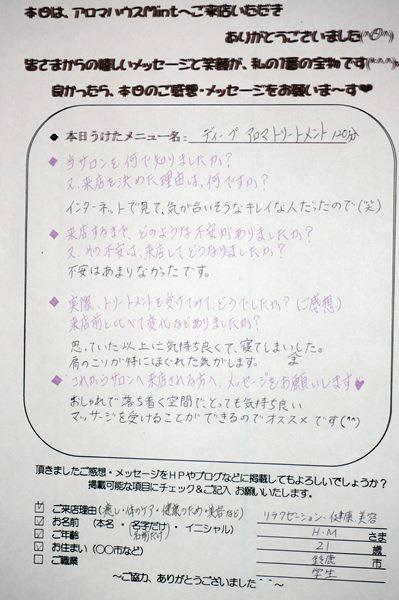 本日は、アロマハウスMintへご来店いただき
ありがとうございました(^O^)
皆さまからの嬉しいメッセージと笑顔が、私の1番の宝物です(*^^*)
良かったら、本日のご感想・メッセージをお願いま～す♥
◆ 本日うけたメニュー名： ディープアロマトリートメント120分
◆ 当サロンを何で知りましたか？
又、来店を決めた理由は、何ですか？
インターネットで見て、気が合いそうなキレイな人だったので(笑)
◆ 来店するまで、どのような不安がありましたか？
又、その不安は、来店してどうなりましたか？
不安はあまりなかったです。
◆ 実際、トリートメントを受けてみて、どうでしたか？(ご感想)
来店前と比べて変化などありましたか？
思っていた以上に気持ち良くて、寝てしまいました。
肩のこりが特にほぐれた気がします。
◆ これからサロンへ来店される方へ、メッセージをお願いします♥
おしゃれで落ち着く空間で、とっても気持ち良い
マッサージを受けることができるのでオススメです(^^)
頂きましたご感想・メッセージをHPやブログなどに掲載してもよろしいでしょうか？
掲載可能な項目にチェック＆ご記入 お願いいたします。
☑ ご来店理由(癒し・体のケア・健康のため・美容など) リラクゼーション・健康、美容
☑ お名前 (本名・(名字だけ)・イニシャル) 名前だけ H・M さま
☑ ご年齢 21 歳
☑ お住まい (〇〇市など) 鈴鹿 市
□ ご職業 学生
～ご協力、ありがとうございました＾＾～